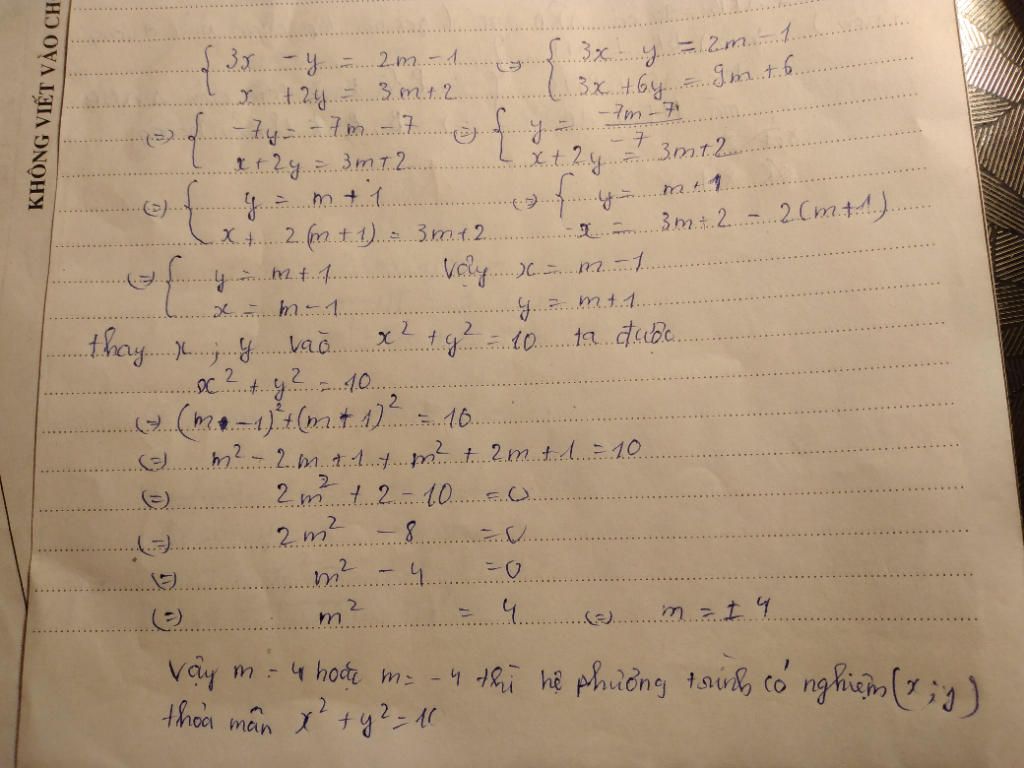 KHÔNG VIẾT VÀO CH
{ 3x - y = 2m - 1 (=) { 3x - y = 2m - 1
x + 2y = 3m + 2 3x + 6y = 9m + 6
(=) { -7y = -7m - 7 (=) { y = -7m - 7 / -7
x + 2y = 3m + 2 x + 2y = 3m + 2
(=) { y = m + 1 (=) { y = m + 1
x + 2(m + 1) = 3m + 2 x = 3m + 2 - 2(m + 1)
(=) { y = m + 1 Vậy x = m - 1
x = m - 1 y = m + 1
thay x ; y vào x² + y² = 10 ta được
x² + y² = 10
(=) (m - 1)² + (m + 1)² = 10
(=) m² - 2m + 1 + m² + 2m + 1 = 10
(=) 2m² + 2 - 10 = 0
(=) 2m² - 8 = 0
(=) m² - 4 = 0
(=) m² = 4 (=) m = ± 4
Vậy m = 4 hoặc m = -4 thì hệ phương trình có nghiệm (x ; y)
thỏa mãn x² + y² = 10